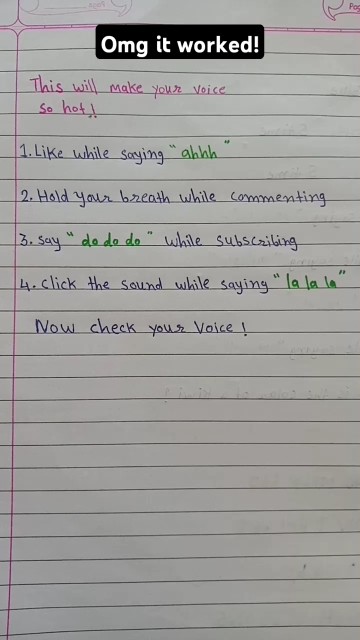 Omg it worked!
This will make your voice
so hot!
1. Like while saying "ahhh"
2. Hold your breath while commenting
3. say "do do do" while subscribing
4. click the sound while saying "la la la"
Now check your voice!